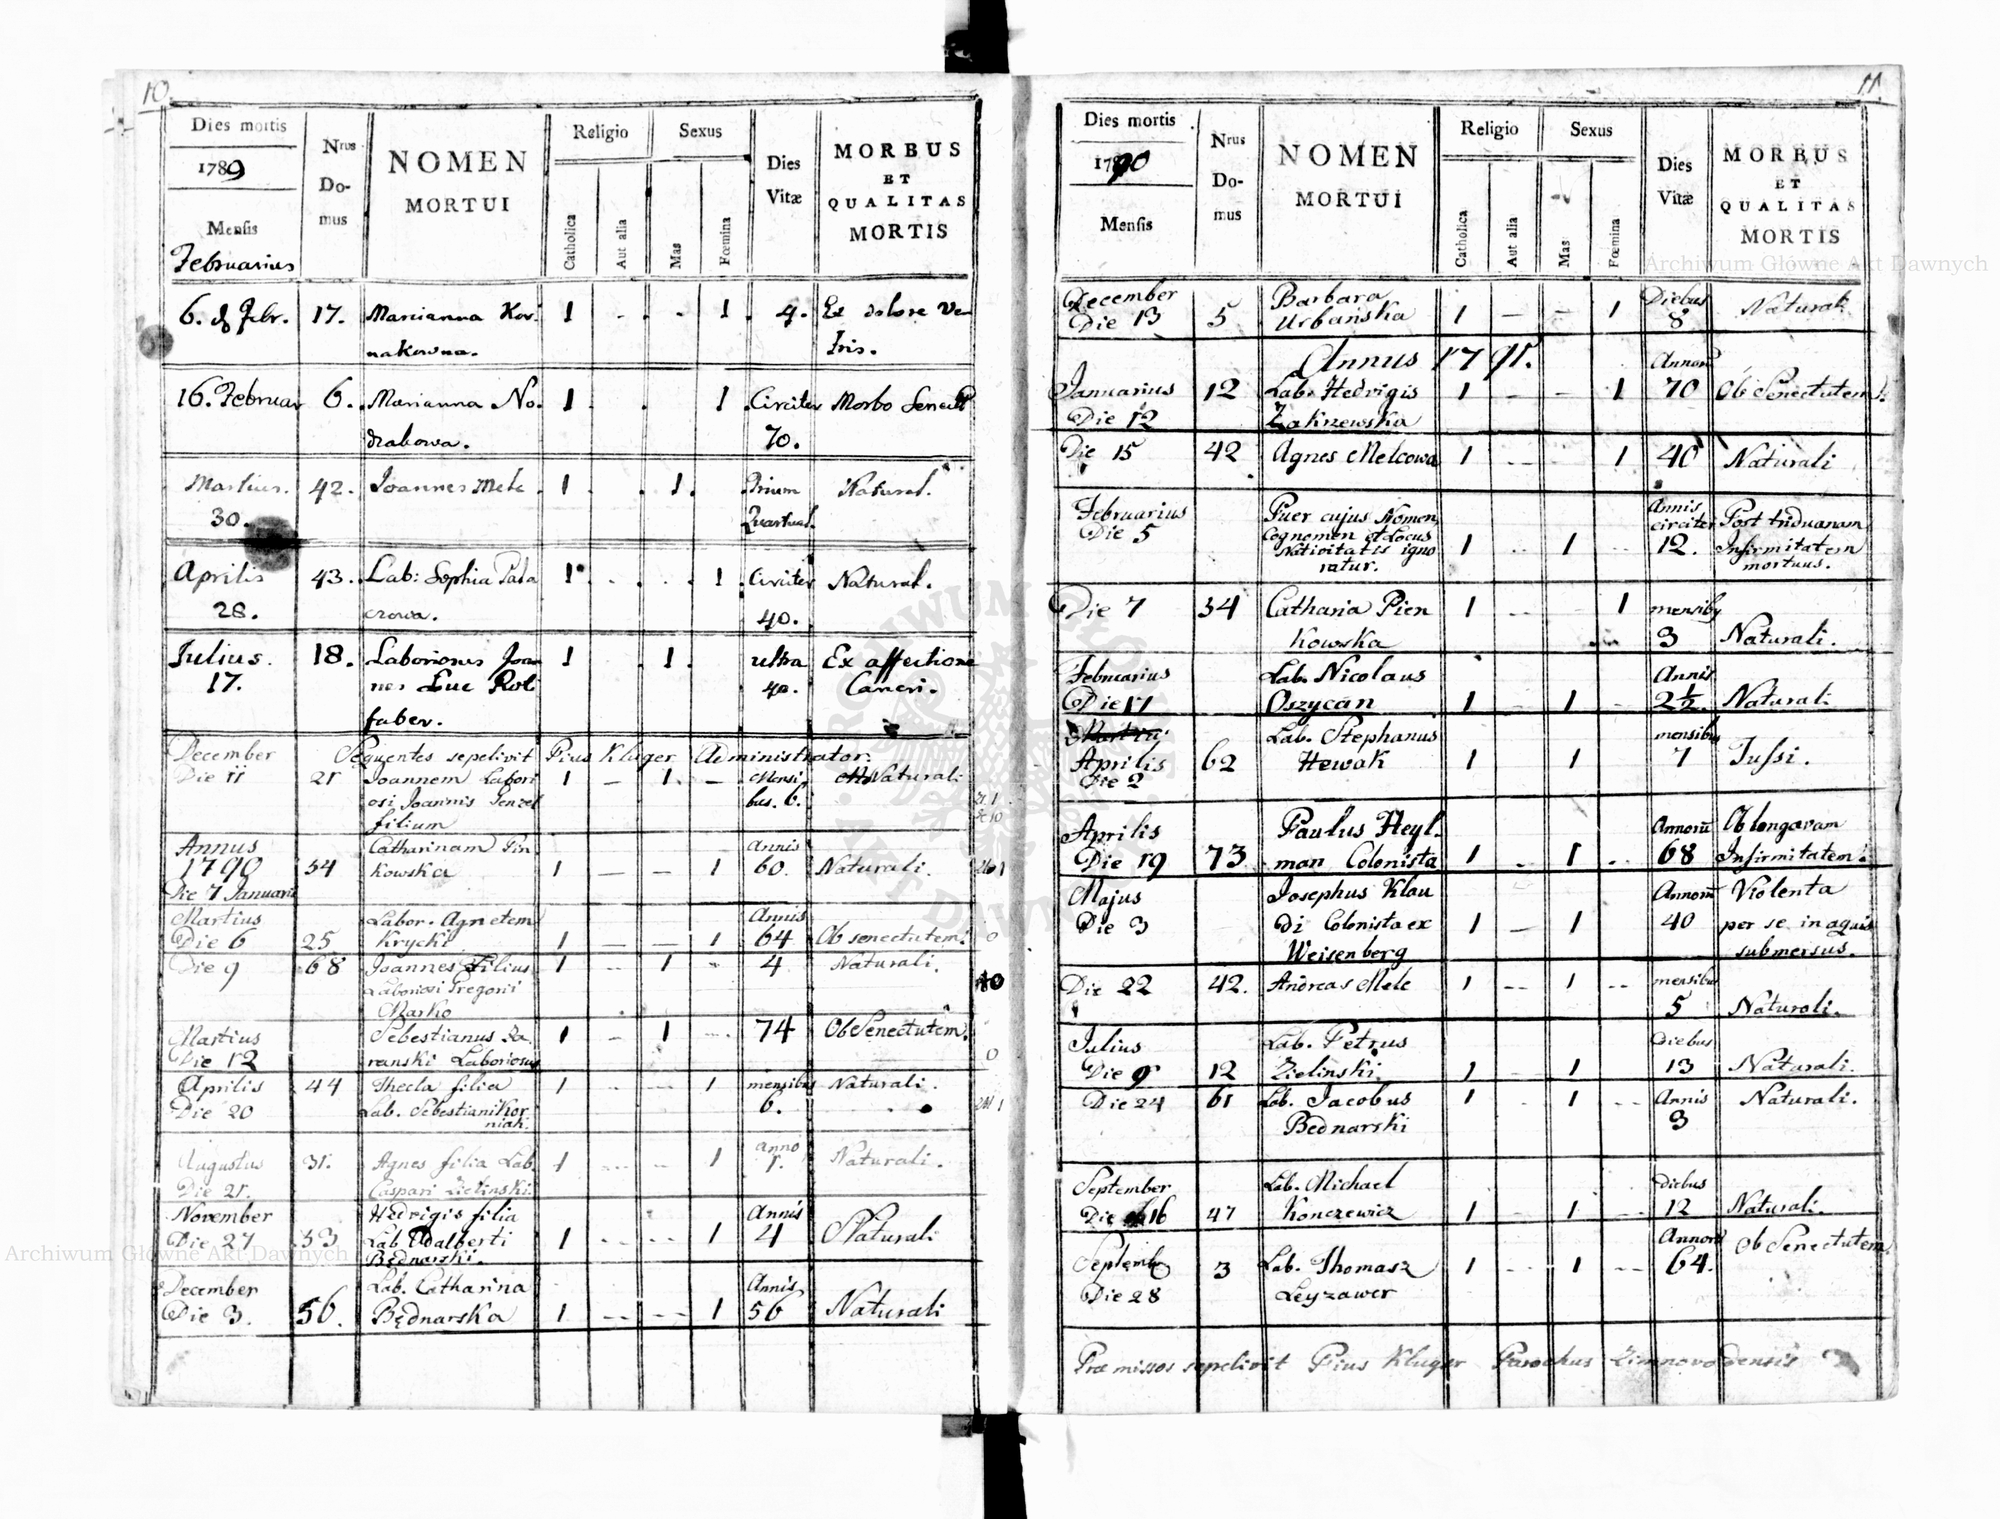 10.
Dies mortis
1789
Mensis
Februarius
Nrus
Do-
mus
NOMEN
MORTUI
Religio
Catholica
Aut alia
Sexus
Mas
Fœmina
Dies
Vitæ
MORBUS
ET
QUALITAS
MORTIS
6. Febr. 17. Marianna Kor 1 1. 4. Ex dolore Ven
nakowna. tris.
16. Februar 6. Marianna No. 1 1 Circiter Morbo
drabowa. 70.
Martius. 42. Joannes Mele 1 1. Natural.
30.
Aprilis 43. Lab: Sophia 1 1 Circiter Natural.
28. crowa. 40.
Julius. 18. Laboriosus Joan 1 1. ultra Ex affectione
17. nes 40. Cancri.
faber.
December Sequentes sepelivit Pius Kluger Administrator.
Die 11 21 Joannem Labori 1 — 1 — Mensi Naturali
osi Joannis bus. 6.
filium
Annus Catharinam Pin
1790 34 kowska 1 — — 1 Annis 60. Naturali.
Die 7 Januarii
Martius Labor. Agnetem Annis
Die 6 25 Krycki 1 — — 1 64 Ob senectutem.
Die 9 68 Joannes Filius 1 — 1 - 4 Naturali.
Laboriosi Gregorii
Marko
Martius Sebestianus 1 - 1 74 Ob Senectutem.
Die 12 ranski Laboriosus
Aprilis 44 Thecla filia 1 1 mensibus Naturali.
Die 20 Lab. Sebestiani Kor 6.
niak.
Augustus 31. Agnes filia Lab. 1 1 anno Naturali.
Die 21. Caspari Zielinski 1.
November Hedrigis filia Annis
Die 27 33 Lab Adalberti 1 1 4 Naturali
Bednarski.
December Lab. Catharina Annis
Die 3. 56. Będnarska 1 1 56 Naturali
11
Dies mortis
1790
Mensis
Nrus
Do-
mus
NOMEN
MORTUI
Religio
Catholica
Aut alia
Sexus
Mas
Fœmina
Dies
Vitæ
MORBUS
ET
QUALITAS
MORTIS
December Barbara Diebus
Die 13 5 Urbańska 1 — — 1 8 Natural
Annus 1791.
Januarius 12 Lab. Hedrigis 1 - - 1 70 Ob Senectutem
Die 12 Zakrzewska
Die 15 42 Agnes Melcowa 1 1 40 Naturali
Februarius Puer cujus Nomen Annis Post triduanam
Die 5 Cognomen et Locus circiter
Nativitatis igno 1 1 12. Infirmitatem
ratur. mortuus.
Die 7 34 Catharia Pien 1 1 mensibus
kowska 3 Naturali.
Februarius Lab. Nicolaus Annis
Die 17 Oszycan 1 1 2½. Naturali.
Lab. Stephanus mensibus
Aprilis 62 Hewak 1 1 7 Tussi.
Die 2
Aprilis Paulus Heyl- Annorū Ob longavam
Die 19 73 man Colonista 1 1 68 Infirmitatem.
Majus Josephus Klau Annorū Violenta
Die 3 di Colonista ex 1 1 40 per se in aquis
Weisenberg submersus.
Die 22 42. Andreas Mele 1 1 mensibus
5 Naturali.
Julius Lab. Petrus Diebus
Die 9 12 Zielinski 1 1 13 Naturali.
Die 24 61 Lab. Jacobus 1 1 Annis Naturali.
Bednarski 3
September Lab. Michael Diebus
Die 16 47 Konczewicz 1 1 12 Naturali.
Septemb 3 Lab. Thomasz 1 1 64. Ob Senectutem
Die 28 Leyzawer
Præmissos sepelivit Pius Kluger Parochus Zimnovodensis
Archiwum Główne Akt Dawnych
Archiwum Główne Akt Dawnych
ARCHIWUM GŁÓWNE AKT DAWNYCH